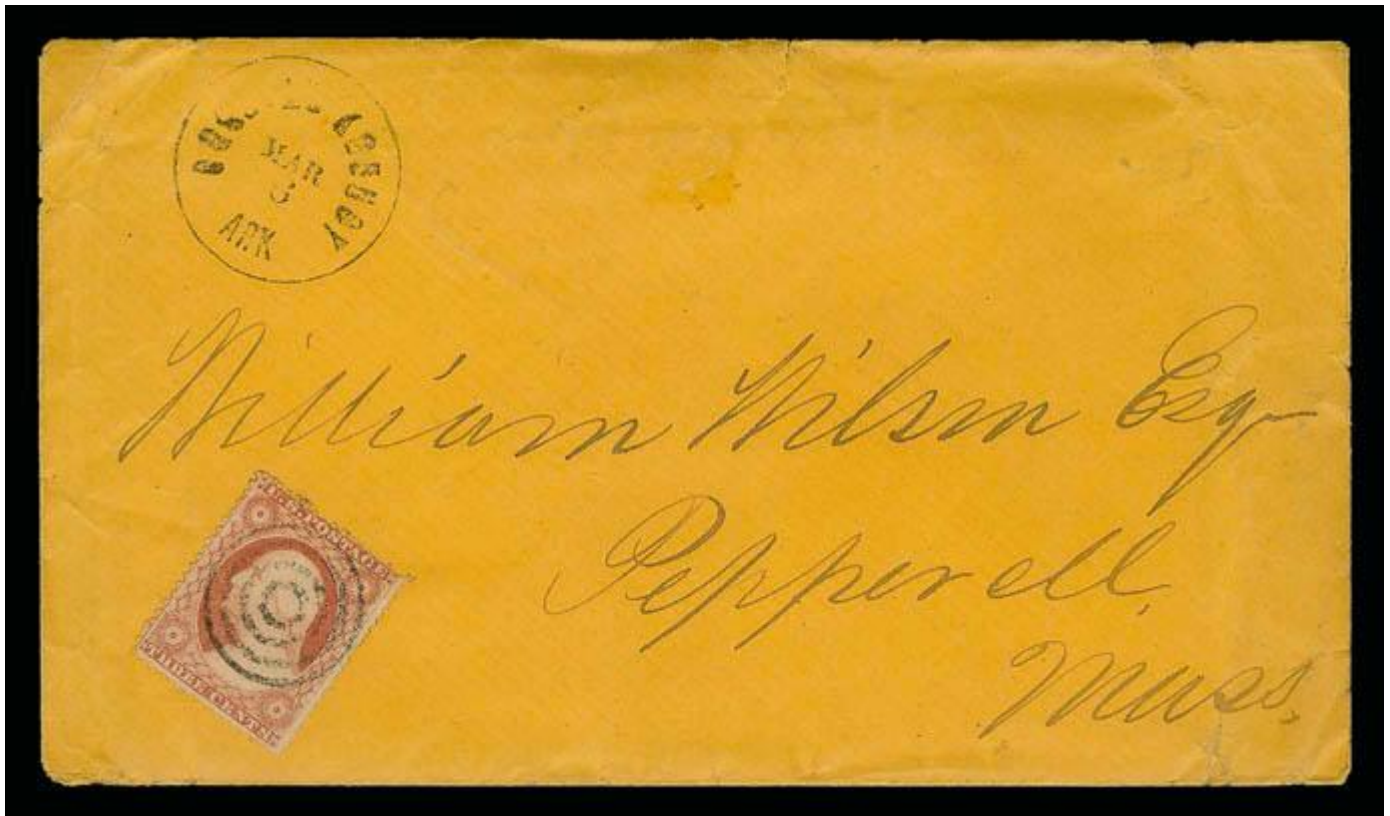 AGENCY
MAR
3
ARK
William Wilson Esq
Pepperell,
Mass,
U.S. POSTAGE
THREE CENTS